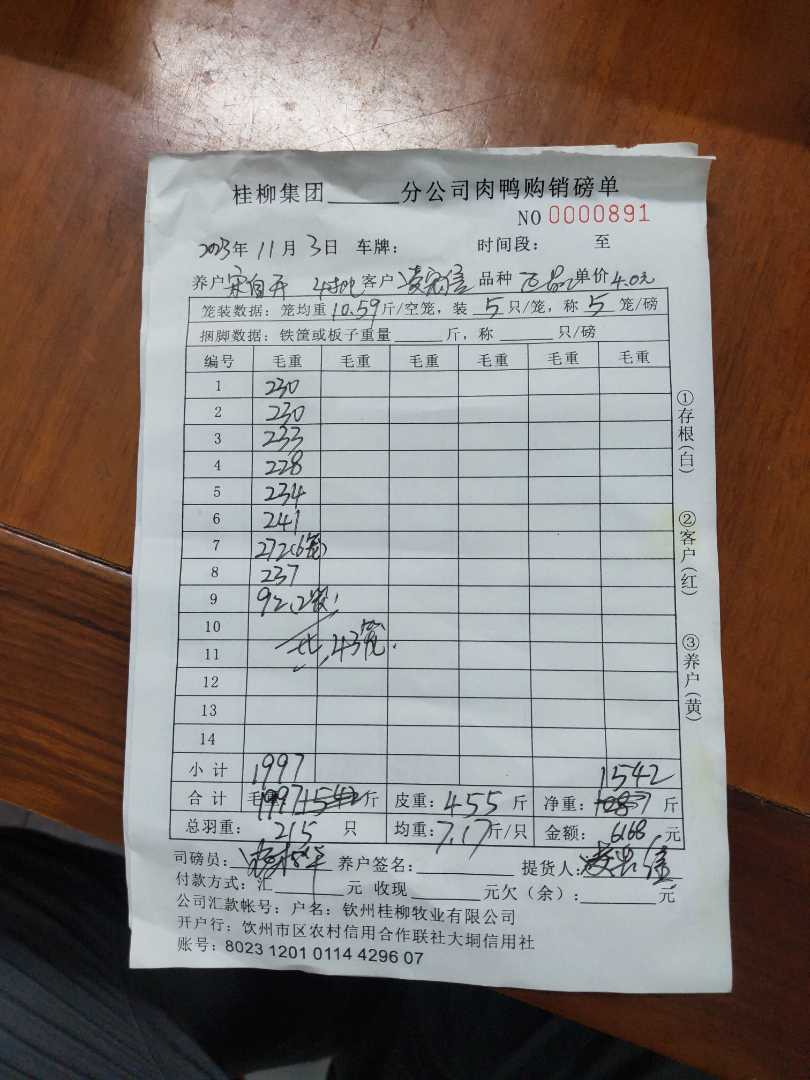 桂柳集团______分公司肉鸭购销磅单
NO 0000891
2023年 11月 3日 车牌： 时间段： 至
养户 宋自开 4批 客户 凌 信 品种 正品 单价 4.0元
笼装数据：笼均重10.59斤/空笼，装 5 只/笼，称 5 笼/磅
捆脚数据：铁筐或板子重量______斤，称______只/磅
编号 毛重 毛重 毛重 毛重 毛重 毛重
1 230
2 230
3 233
4 228
5 234
6 241
7 272(6笼)
8 237
9 92(2笼)
10
11 共43笼.
12
13
14
小计 1997 1542
合计 毛重1997斤 皮重：455斤 净重： 斤
总羽重： 215 只 均重：7.17斤/只 金额： 6168 元
司磅员： 养户签名： 提货人：
付款方式：汇______元 收现______元欠（余）：______元
公司汇款帐号：户名：钦州桂柳牧业有限公司
开户行：饮州市区农村信用合作联社大垌信用社
账号：8023 1201 0114 4296 07
①存根(白)
②客户(红)
③养户(黄)